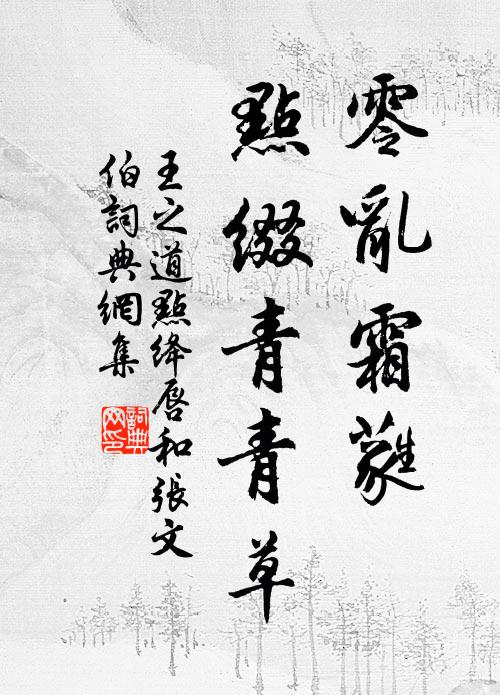 零亂霜蕤
點綴青青草
王之道點絳唇和張文
伯詞典網集
詞典
网印